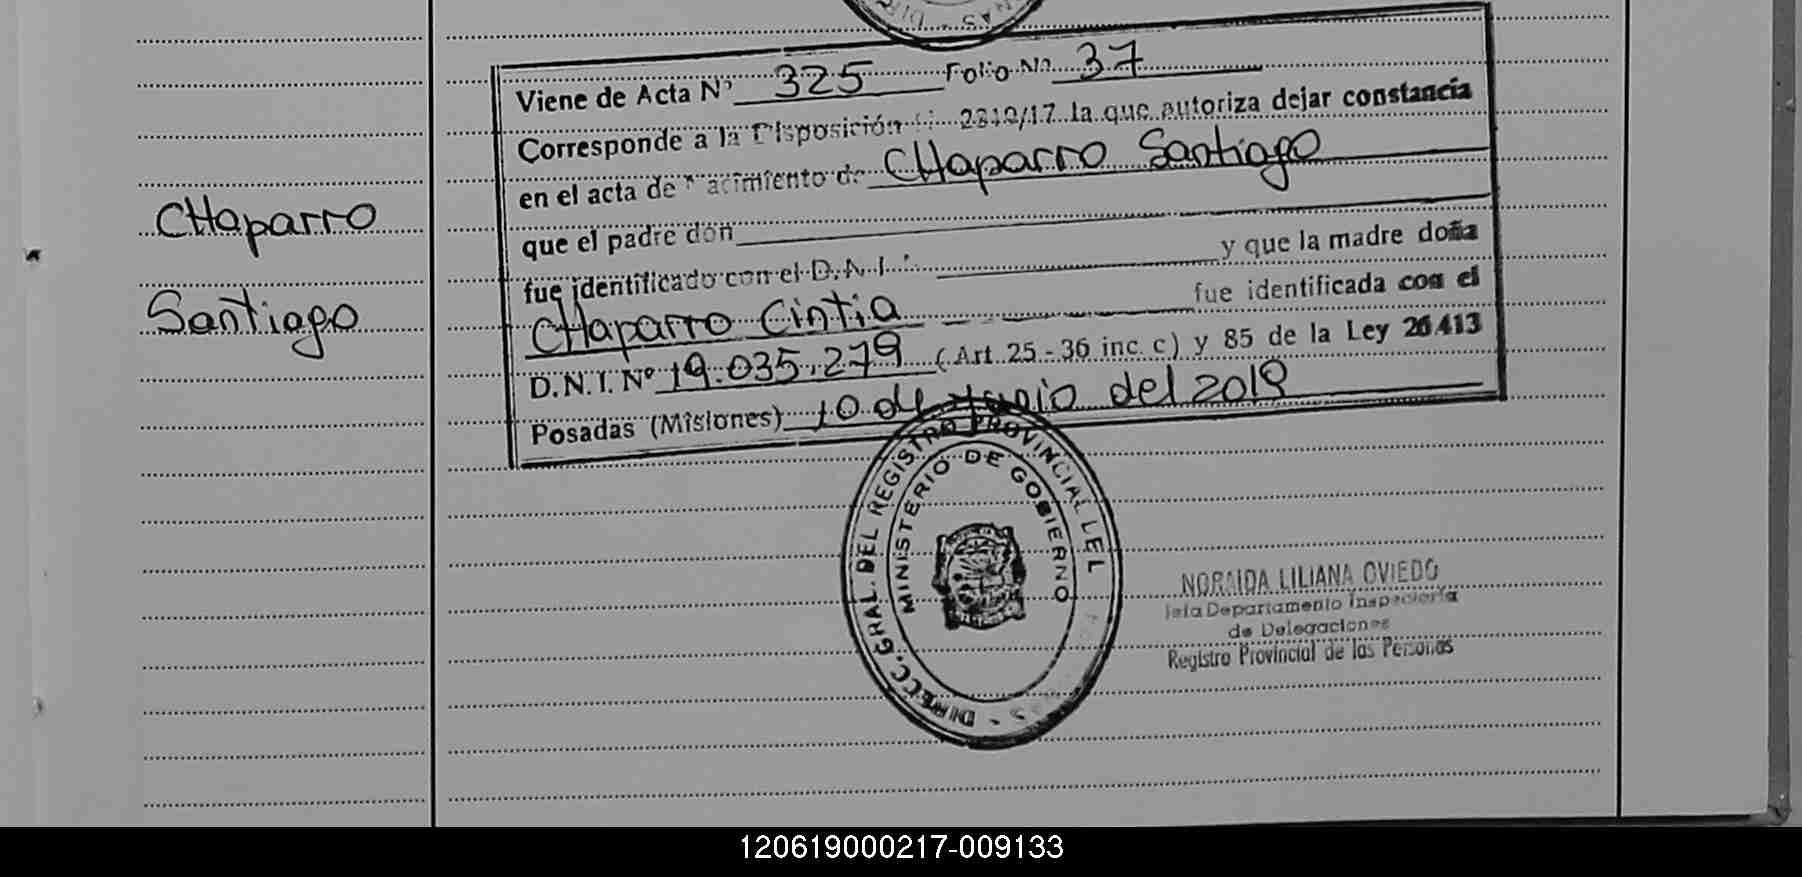 Viene de Acta Nº 325 Folio Nº 37
Corresponde a la Disposición 2310/17 la que autoriza dejar constancia
en el acta de Nacimiento de CHaparro Santiago
que el padre don
fue identificado con el D.N.I. y que la madre doña
CHaparro Cintia fue identificada con el
D.N.I. Nº 19.035.279 (Art. 25-36 inc. c) y 85 de la Ley 26413
Posadas (Misiones) 10 de Junio del 2019
CHaparro
Santiago
DIRECC. GRAL. DEL REGISTRO PROVINCIAL
MINISTERIO DE GOBIERNO
NORAIDA LILIANA OVIEDO
Jefa Departamento Inspectoría
de Delegaciones
Registro Provincial de las Personas
120619000217-009133